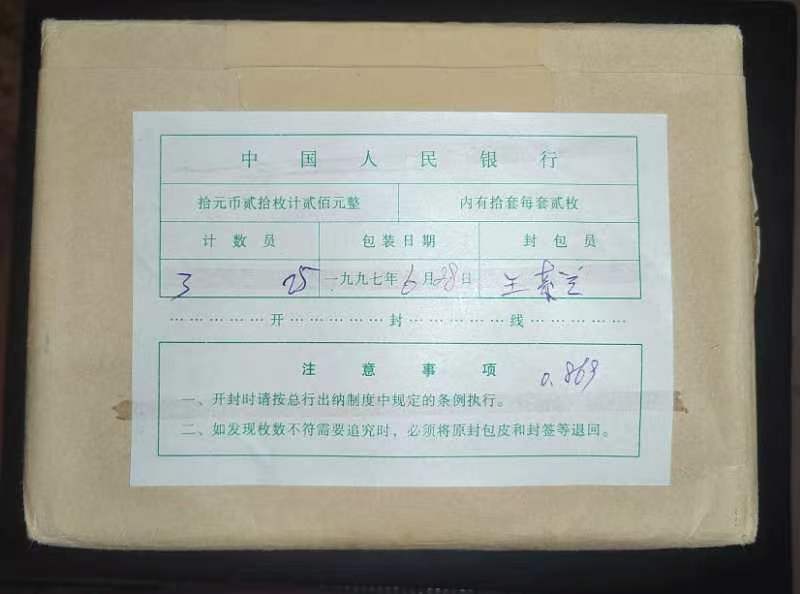 中国人民银行
拾元币贰拾枚计贰佰元整 内有拾套每套贰枚
计数员 包装日期 封包员
3 25 一九九七年6月28日 王秦兰
……………开……………封……………线……………
注意事项 0.869
一、开封时请按总行出纳制度中规定的条例执行。
二、如发现枚数不符需要追究时,必须将原封包皮和封签等退回。